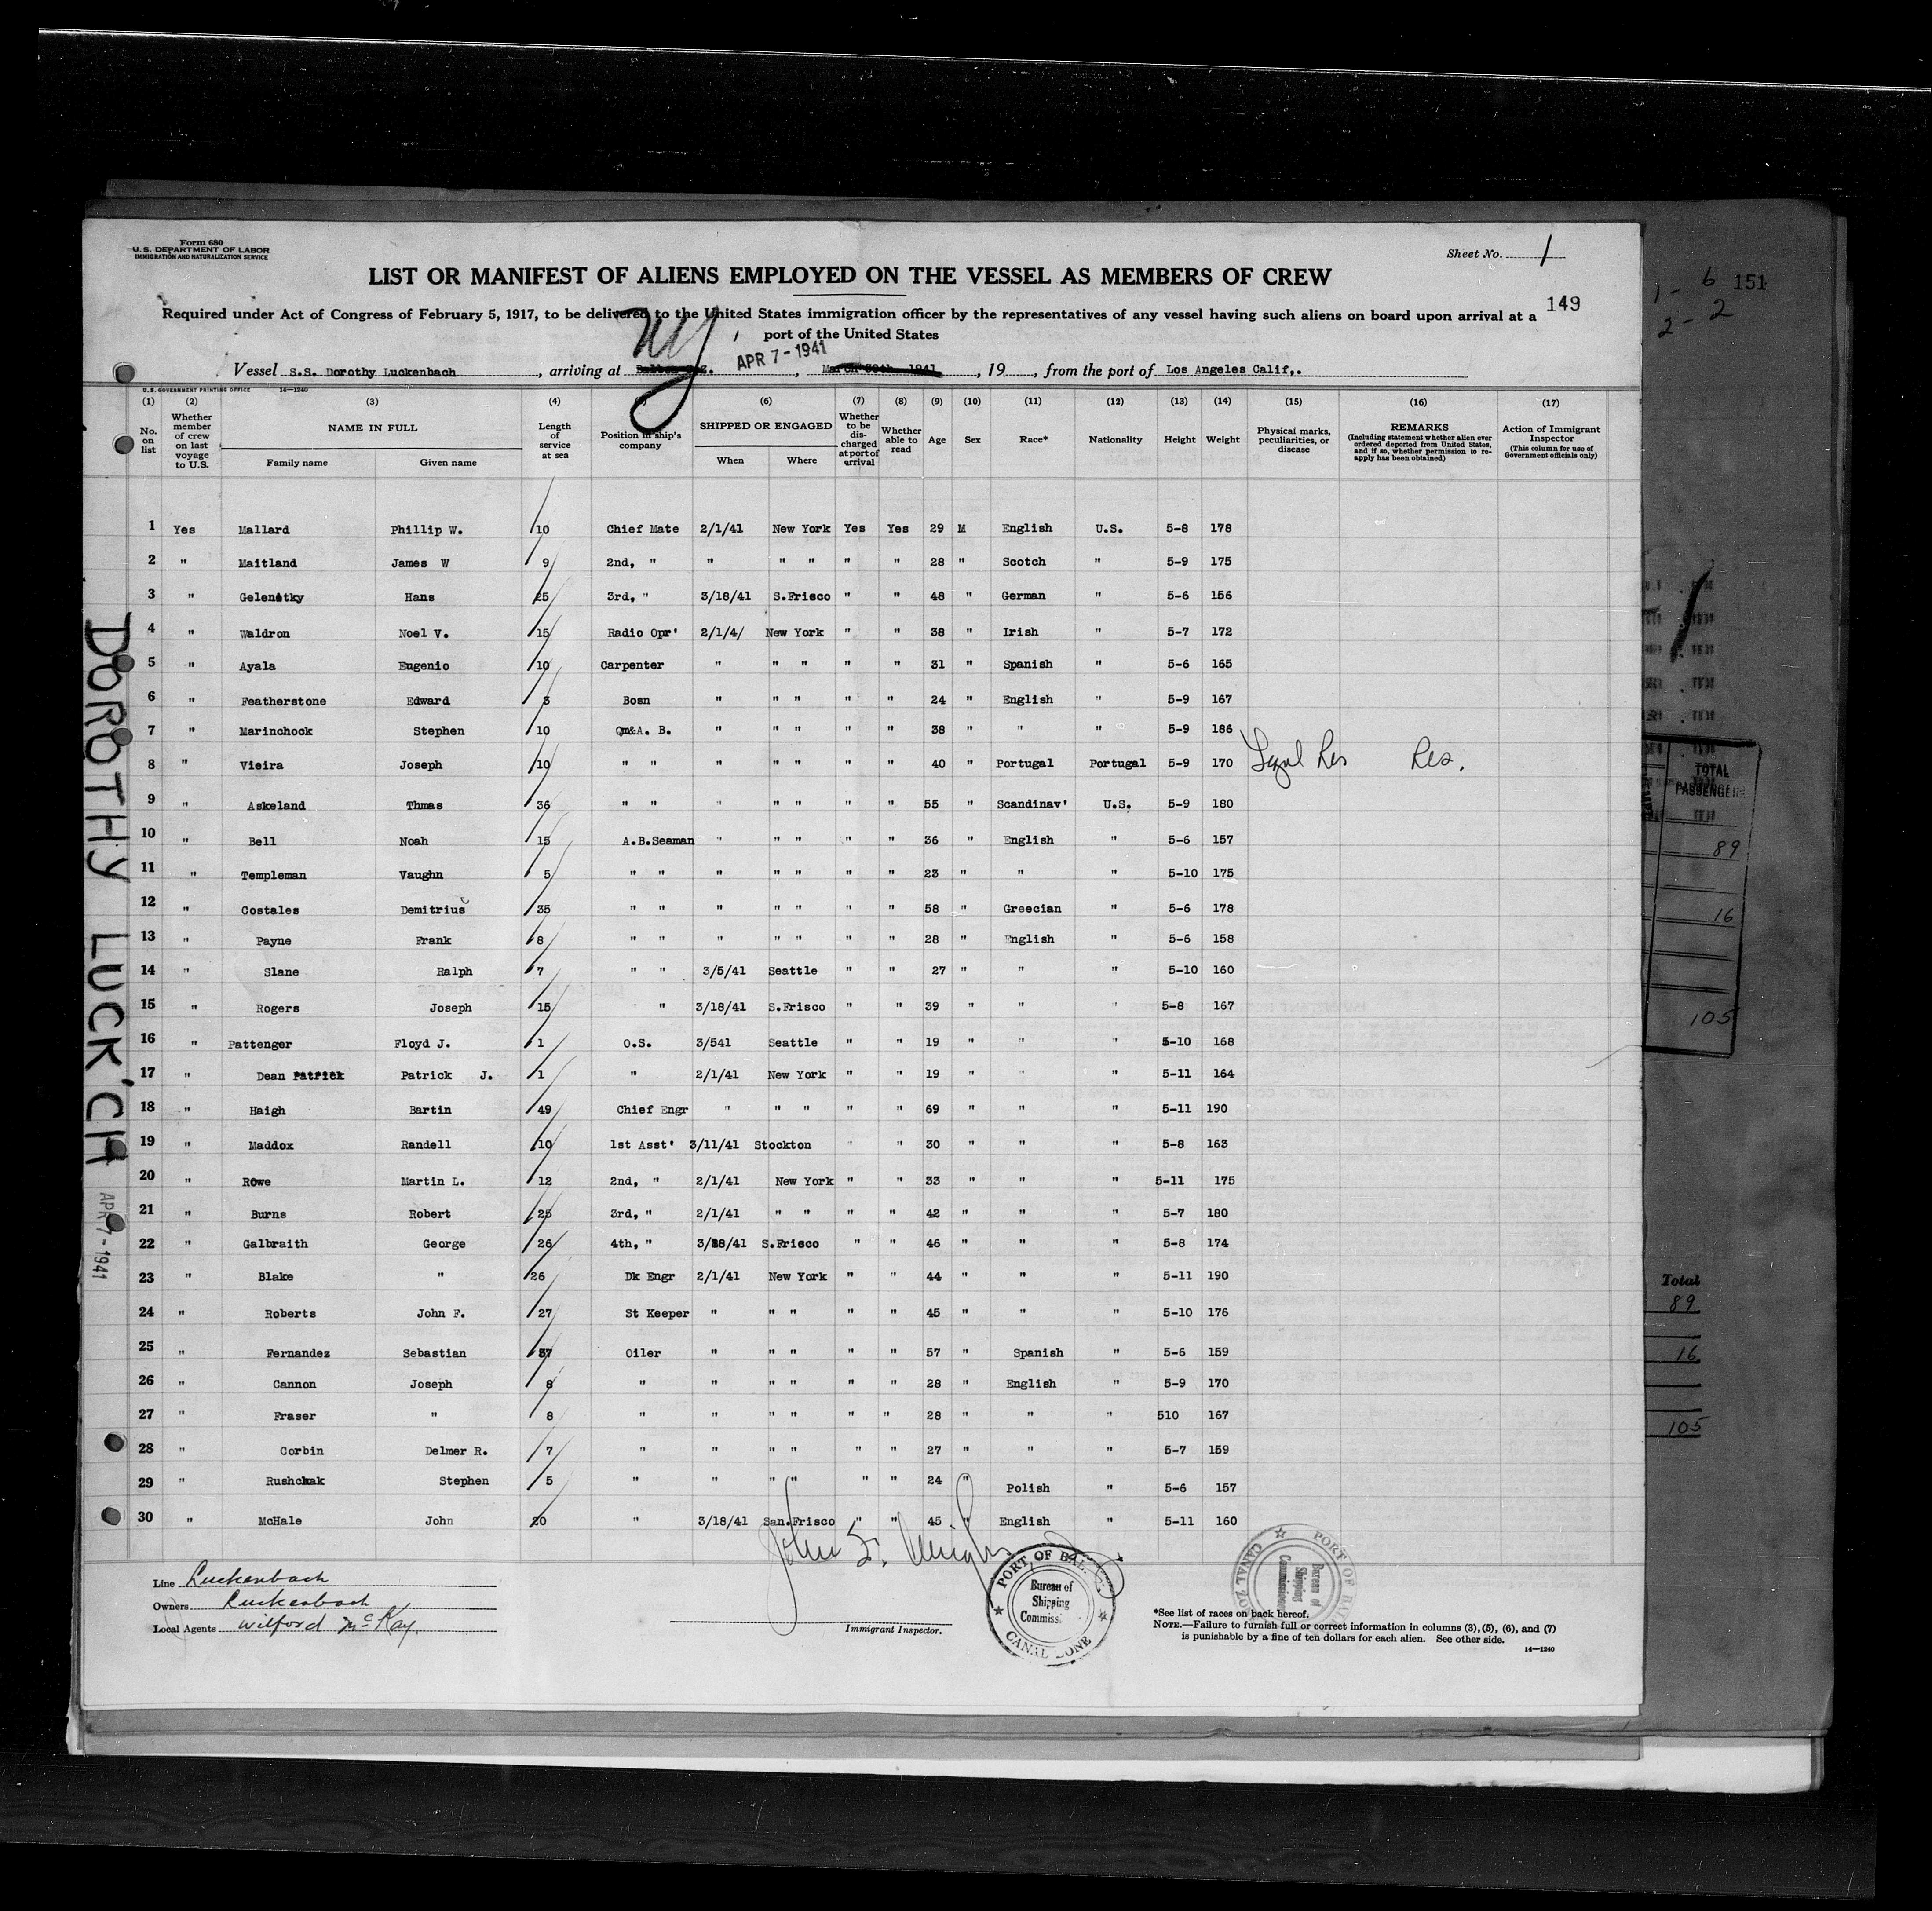 Form 680
U. S. DEPARTMENT OF LABOR
IMMIGRATION AND NATURALIZATION SERVICE
Sheet No. 1
LIST OR MANIFEST OF ALIENS EMPLOYED ON THE VESSEL AS MEMBERS OF CREW
149
Required under Act of Congress of February 5, 1917, to be delivered to the United States immigration officer by the representatives of any vessel having such aliens on board upon arrival at a
port of the United States
NY,
APR 7 - 1941
Vessel S.S. Dorothy Luckenbach, arriving at , March 30th 1941, 19 , from the port of Los Angeles Calif,.
U. S. GOVERNMENT PRINTING OFFICE 14—1240
(1) (2) (3) (4) (6) (7) (8) (9) (10) (11) (12) (13) (14) (15) (16) (17)
No. on list Whether member of crew on last voyage to U.S. NAME IN FULL Family name Given name Length of service at sea Position in ship's company SHIPPED OR ENGAGED When Where Whether to be discharged at port of arrival Whether able to read Age Sex Race* Nationality Height Weight Physical marks, peculiarities, or disease REMARKS (Including statement whether alien ever ordered deported from United States, and if so, whether permission to reapply has been obtained) Action of Immigrant Inspector (This column for use of Government officials only)
1 Yes Mallard Phillip W. 10 Chief Mate 2/1/41 New York Yes Yes 29 M English U.S. 5-8 178
2 " Maitland James W 9 2nd, " " " " " " 28 " Scotch " 5-9 175
3 " Gelenetky Hans 25 3rd, " 3/18/41 S.Frisco " " 48 " German " 5-6 156
4 " Waldron Noel V. 15 Radio Opr' 2/1/4/ New York " " 38 " Irish " 5-7 172
5 " Ayala Eugenio 10 Carpenter " " " " " 31 " Spanish " 5-6 165
6 " Featherstone Edward 3 Bosn " " " " " 24 " English " 5-9 167
7 " Marinchock Stephen 10 Qm&A. B. " " " " " 38 " " " 5-9 186
8 " Vieira Joseph 10 " " " " " " " 40 " Portugal Portugal 5-9 170 Legal Res Res.
9 " Askeland Thmas 36 " " " " " " " 55 " Scandinav' U.S. 5-9 180
10 " Bell Noah 15 A.B.Seaman " " " " " 36 " English " 5-6 157
11 " Templeman Vaughn 5 " " " " " " " 23 " " " 5-10 175
12 " Costales Demitrius 35 " " " " " " " 58 " Greecian " 5-6 178
13 " Payne Frank 8 " " " " " " " 28 " English " 5-6 158
14 " Slane Ralph 7 " " 3/5/41 Seattle " " 27 " " " 5-10 160
15 " Rogers Joseph 15 " " 3/18/41 S.Frisco " " 39 " " " 5-8 167
16 " Pattenger Floyd J. 1 O.S. 3/541 Seattle " " 19 " " " 5-10 168
17 " Dean Patrick Patrick J. 1 " 2/1/41 New York " " 19 " " " 5-11 164
18 " Haigh Bartin 49 Chief Engr " " " " " 69 " " " 5-11 190
19 " Maddox Randell 10 1st Asst' 3/11/41 Stockton " " 30 " " " 5-8 163
20 " Rowe Martin L. 12 2nd, " 2/1/41 New York " " 33 " " " 5-11 175
21 " Burns Robert 25 3rd, " 2/1/41 " " " " 42 " " " 5-7 180
22 " Galbraith George 26 4th, " 3/18/41 S.Frisco " " 46 " " " 5-8 174
23 " Blake " 26 Dk Engr 2/1/41 New York " " 44 " " " 5-11 190
24 " Roberts John F. 27 St Keeper " " " " " 45 " " " 5-10 176
25 " Fernandez Sebastian 37 Oiler " " " " " 57 " Spanish " 5-6 159
26 " Cannon Joseph 8 " " " " " " 28 " English " 5-9 170
27 " Fraser " 8 " " " " " " 28 " " " 510 167
28 " Corbin Delmer R. 7 " " " " " " 27 " " " 5-7 159
29 " Rushchak Stephen 5 " " " " " " 24 " Polish " 5-6 157
30 " McHale John 20 " 3/18/41 San.Frisco " " 45 " English " 5-11 160
Line Luckenbach
Owners Luckenbach
Local Agents Wilford McKay.
Immigrant Inspector.
PORT OF BAL
Bureau of
Shipping
Commiss
CANAL ZONE
PORT OF BALB
Bureau of
Shipping
Commissioner
CANAL ZONE
*See list of races on back hereof.
NOTE.—Failure to furnish full or correct information in columns (3), (5), (6), and (7)
is punishable by a fine of ten dollars for each alien. See other side.
14—1240
DOROTHY LUCK'CH
APR 7 - 1941
1 - 6 151
2 - 2
TOTAL
PASSENGERS
89
16
105
Total
89
16
105